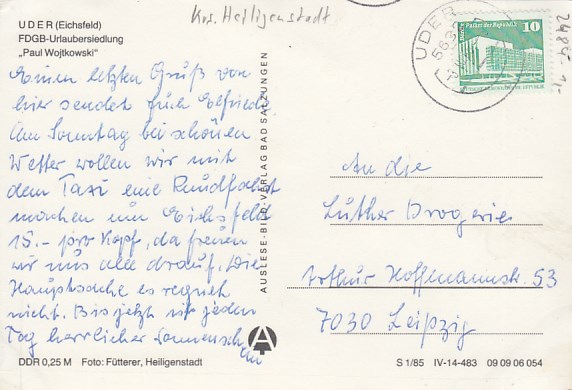 Krs. Heiligenstadt
UDER (Eichsfeld)
FDGB-Urlaubersiedlung
„Paul Wojtkowski"
Einen letzten Gruß von
hier sendet Euch Elfriede
Am Sonntag bei schönen
Wetter wollen wir mit
dem Taxi eine Rundfahrt
machen im Eichsfeld
15.- pro Kopf, da freuen
wir uns alle drauf. Die
Hauptsache es regnet
nicht. Bis jetzt ist jeden
Tag herrlicher Sonnenschein
DDR 0,25 M Foto: Fütterer, Heiligenstadt
AUSLESE-BILD-VERLAG BAD SALZUNGEN
A
UDER
10
Palast der Republik
An die
Luther Drogerie
Arthur Hoffmannstr. 53
7030 Leipzig
S 1/85 IV-14-483 09 09 06 054